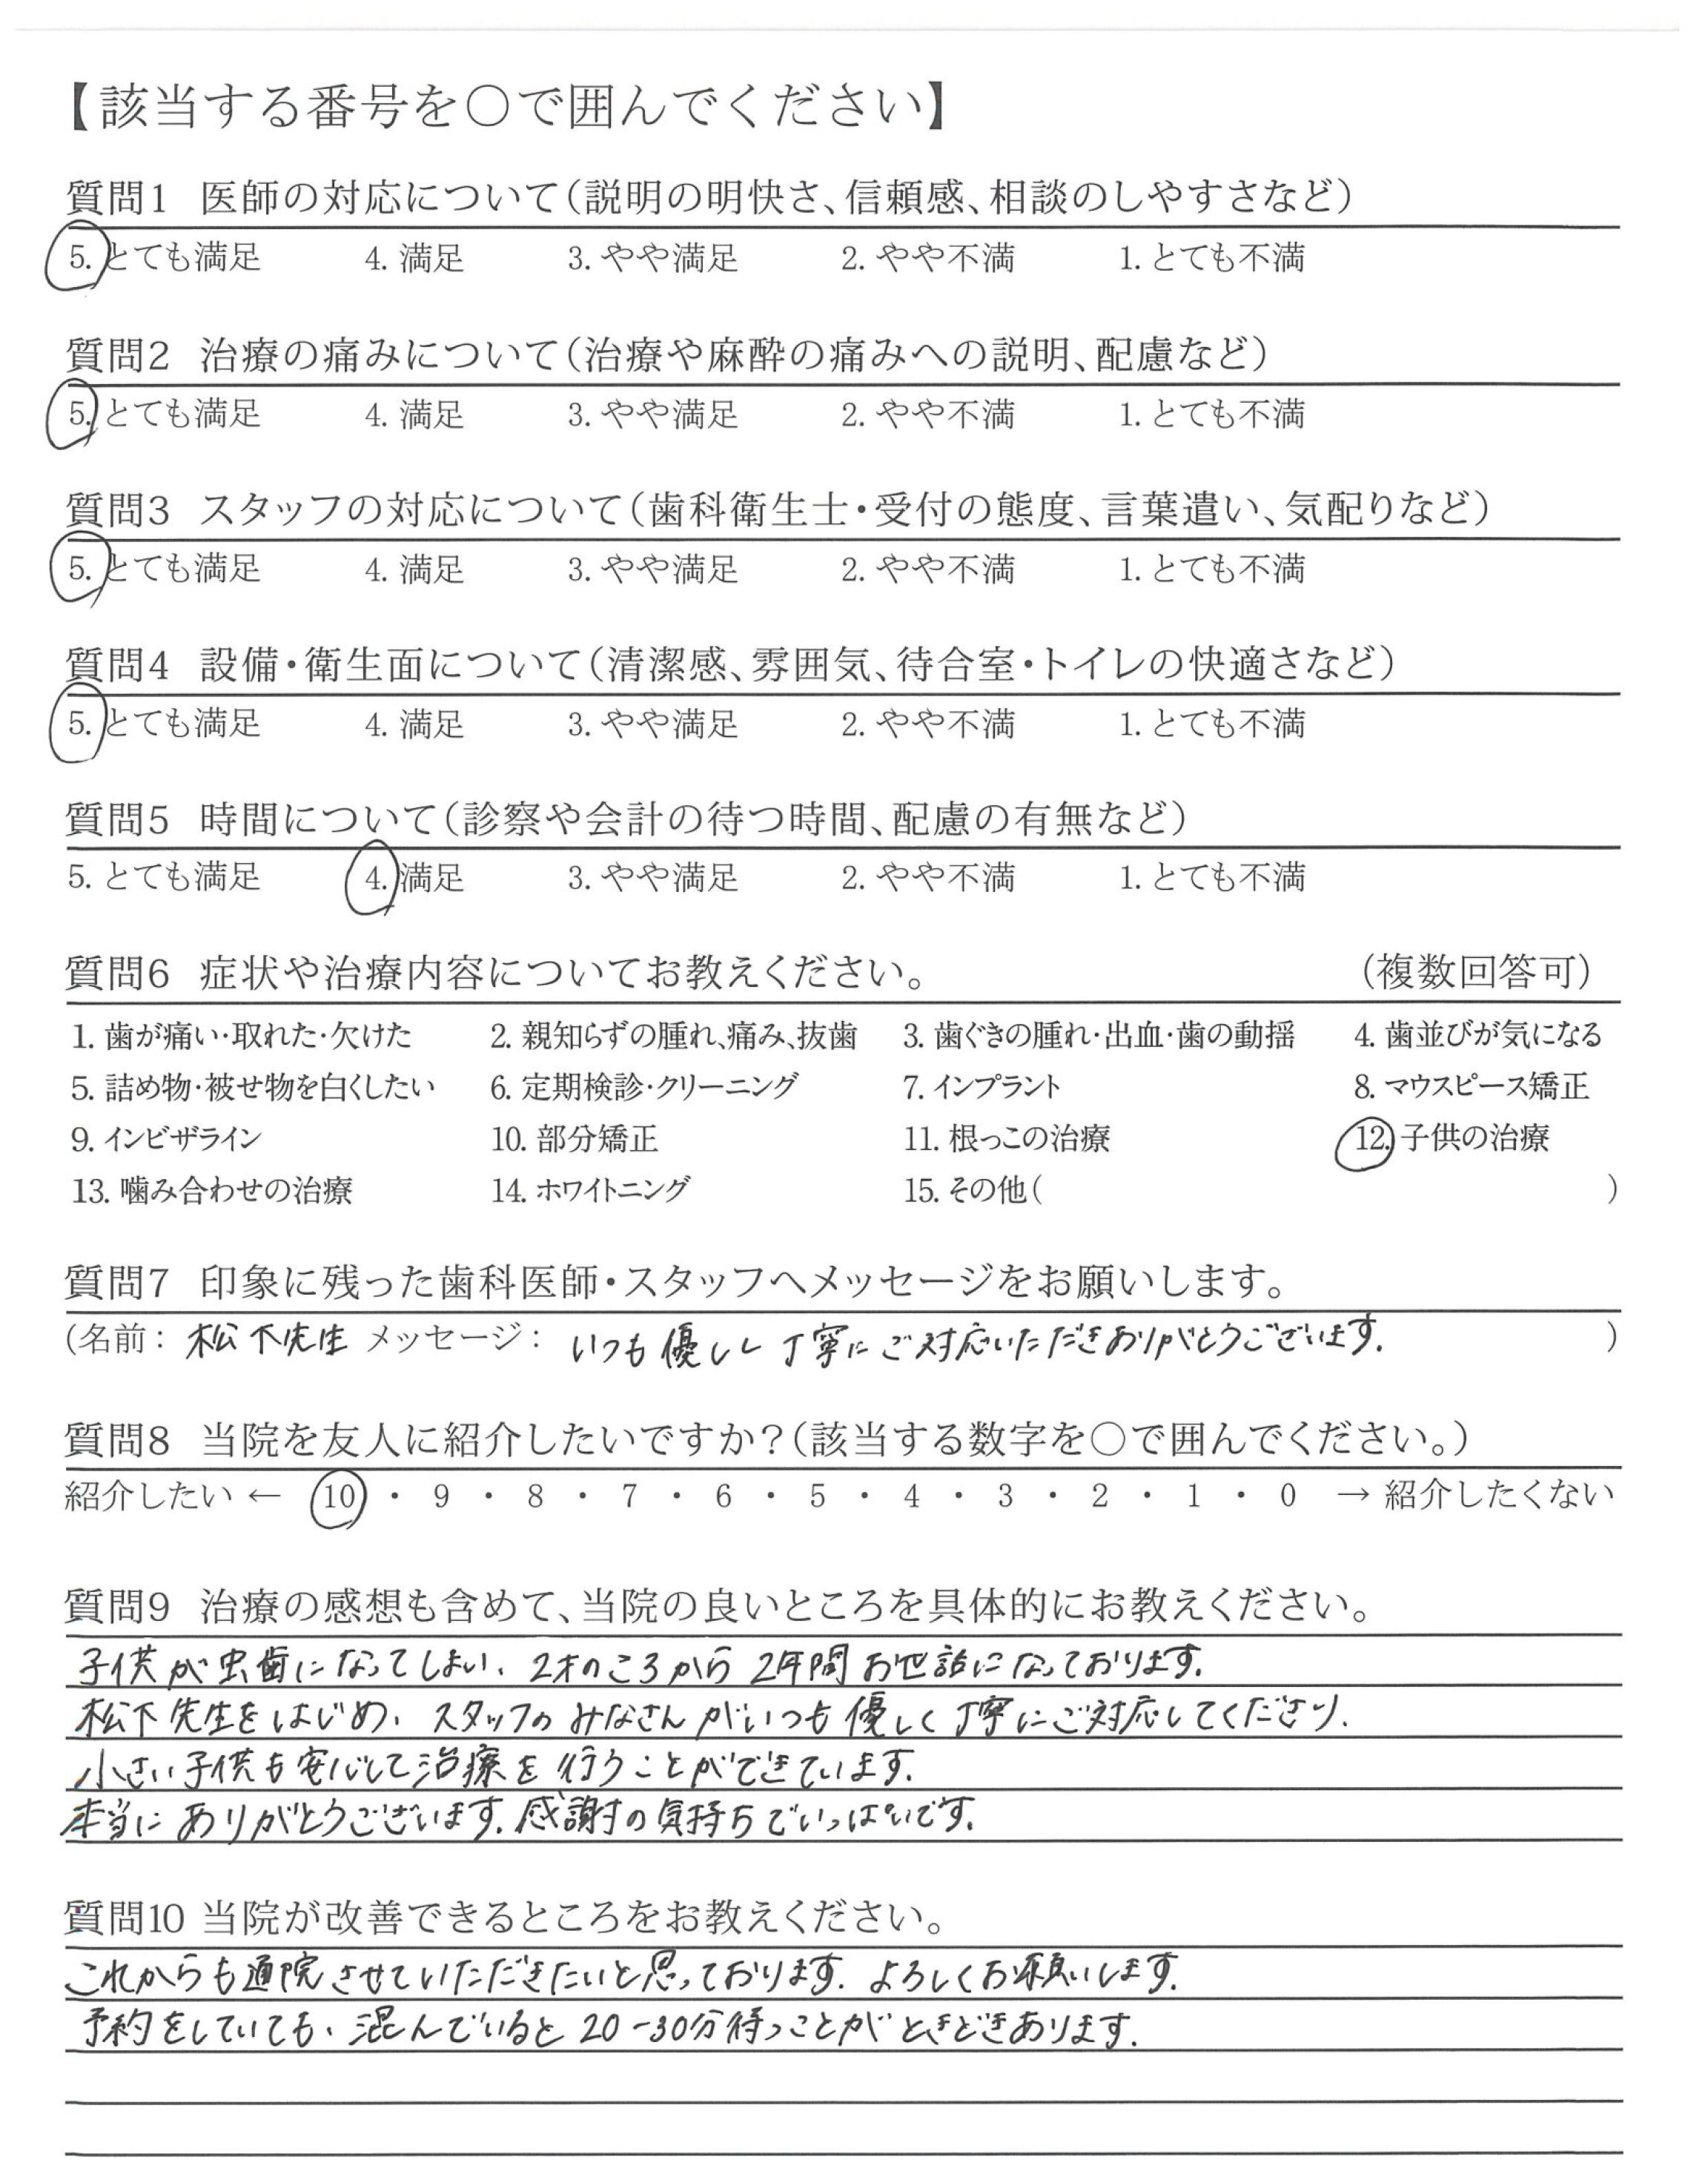 【該当する番号を○で囲んでください】
質問1 医師の対応について(説明の明快さ、信頼感、相談のしやすさなど)
5. とても満足 4. 満足 3. やや満足 2. やや不満 1. とても不満
質問2 治療の痛みについて(治療や麻酔の痛みへの説明、配慮など)
5. とても満足 4. 満足 3. やや満足 2. やや不満 1. とても不満
質問3 スタッフの対応について(歯科衛生士・受付の態度、言葉遣い、気配りなど)
5. とても満足 4. 満足 3. やや満足 2. やや不満 1. とても不満
質問4 設備・衛生面について(清潔感、雰囲気、待合室・トイレの快適さなど)
5. とても満足 4. 満足 3. やや満足 2. やや不満 1. とても不満
質問5 時間について(診察や会計の待つ時間、配慮の有無など)
5. とても満足 4. 満足 3. やや満足 2. やや不満 1. とても不満
質問6 症状や治療内容についてお教えください。 (複数回答可)
1. 歯が痛い・取れた・欠けた 2. 親知らずの腫れ、痛み、抜歯 3. 歯ぐきの腫れ・出血・歯の動揺 4. 歯並びが気になる
5. 詰め物・被せ物を白くしたい 6. 定期検診・クリーニング 7. インプラント 8. マウスピース矯正
9. インビザライン 10. 部分矯正 11. 根っこの治療 12. 子供の治療
13. 噛み合わせの治療 14. ホワイトニング 15. その他( )
質問7 印象に残った歯科医師・スタッフへメッセージをお願いします。
(名前: 松下先生 メッセージ: いつも優しく丁寧にご対応いただきありがとうございます。 )
質問8 当院を友人に紹介したいですか?(該当する数字を○で囲んでください。)
紹介したい ← 10 ・ 9 ・ 8 ・ 7 ・ 6 ・ 5 ・ 4 ・ 3 ・ 2 ・ 1 ・ 0 → 紹介したくない
質問9 治療の感想も含めて、当院の良いところを具体的にお教えください。
子供が虫歯になってしまい、2才のころから2年間お世話になっております。
松下先生をはじめ、スタッフのみなさんがいつも優しく丁寧にご対応してくださり、
小さい子供も安心して治療を行うことができています。
本当にありがとうございます。感謝の気持ちでいっぱいです。
質問10 当院が改善できるところをお教えください。
これからも通院させていただきたいと思っております。よろしくお願いします。
予約をしていても、混んでいると20-30分待つことがときどきあります。